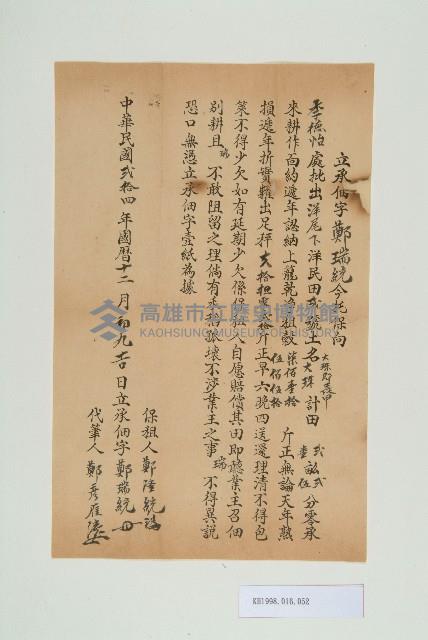 立承佃字鄭瑞統今託保向
李德怡處批出洋尾下洋民田 號土名大塚 計田 弍畝弍分零承
大塚
來耕作面約遞年認納上龍乾淨租穀柒佰叁拾 斤正無論天年熟
伍佰伍拾
損遞年折實糶出足秤 斤正早六晚四送還理清不得包
策不得少欠如有延期少欠係保租人自愿賠償其田即聽業主召佃
別耕且瑞不敢阻留之理倘有 不涉業主之事瑞不得異說
恐口無憑立承佃字壹紙為據
中華民國弍拾四年國曆十二月初九吉日立承佃字鄭瑞統
保租人鄭隆統
代筆人鄭彥雁
高雄市立歷史博物館
KAOHSIUNG MUSEUM OF HISTORY
KH1998.016.052